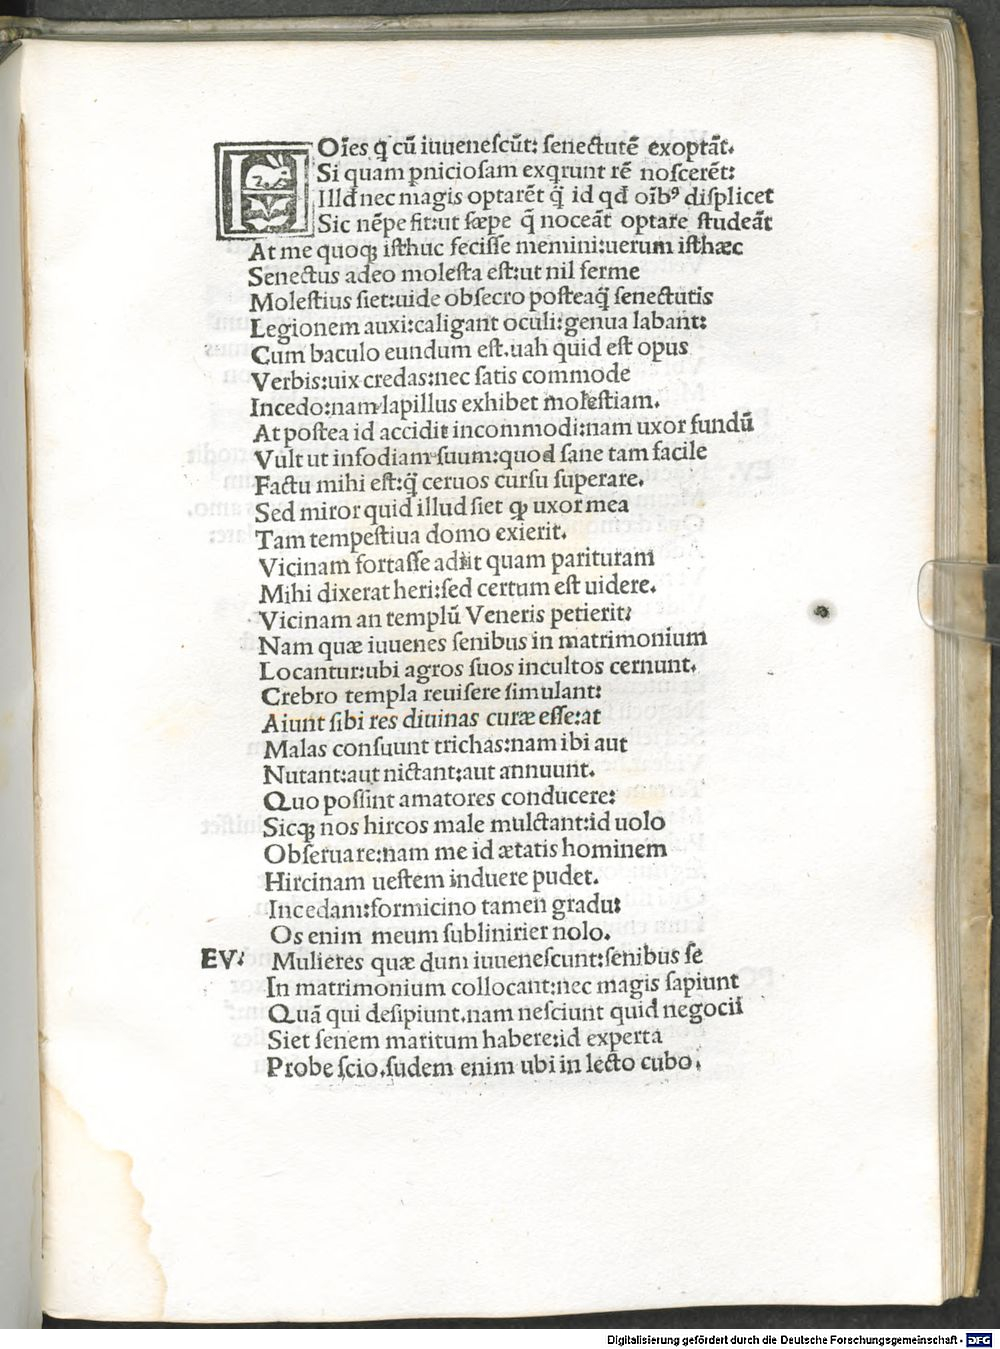 HOı̃es q̃ cũ iuuenescũt: senectutẽ exoptãt.
Si quam ꝑniciosam exqrunt rẽ noscerẽt:
Illđ nec magis optarẽt q̃̈ id qđ oı̃bꝰ displicet
Sic nẽpe fit:ut sæpe q̃ noceãt optare studeãt
At me quoqꝫ isthuc fecisse memini:uerum isthæc
Senectus adeo molesta est:ut nil ferme
Molestius siet:uide obsecro posteaq̃̈ senectutis
Legionem auxi:caligant oculi:genua labant:
Cum baculo eundum est.uah quid est opus
Verbis:uix credas:nec satis commode
Incedo:nam lapillus exhibet molestiam.
At postea id accidit incommodi:nam uxor fundũ
Vult ut infodiam suum:quod sane tam facile
Factu mihi est:q̃̈ ceruos cursu superare.
Sed miror quid illud siet ꝙ uxor mea
Tam tempestiua domo exierit.
Vicinam fortasse adiit quam parituram
Mihi dixerat heri:sed certum est uidere.
Vicinam an templũ Veneris petierit:
Nam quæ iuuenes senibus in matrimonium
Locantur:ubi agros suos incultos cernunt.
Crebro templa reuisere simulant:
Aiunt sibi res diuinas curæ esse:at
Malas consuunt trichas:nam ibi aut
Nutant:aut nictant:aut annuunt.
Quo possint amatores conducere:
Sicqꝫ nos hircos male mulctant:id uolo
Obseruare:nam me id ætatis hominem
Hircinam uestem induere pudet.
Incedam:formicino tamen gradu:
Os enim meum sublinirier nolo.
EV: Mulieres quæ dum iuuenescunt:senibus se
In matrimonium collocant:nec magis sapiunt
Quã qui desipiunt.nam nesciunt quid negocii
Siet senem maritum habere:id experta
Probe scio.sudem enim ubi in lecto cubo.
Digitalisierung gefördert durch die Deutsche Forschungsgemeinschaft - DFG